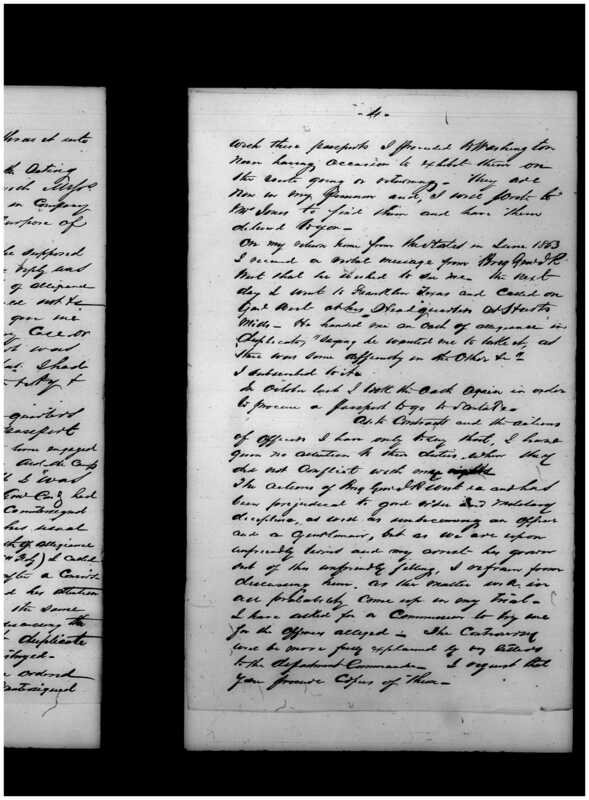 thas it into
the Acting
with Messrs
in Company
purpose of
be supposed
reply was
of allegiance
not to
gave me
was
I had
quarters
Passport
been engaged
And the Corp
I was
Genl Com'd'g had
Countersigned
his usual
Oath of allegiance
I called
after a Careful
his attention
the same
the
duplicate
destroyed.
ordered
Countersigned
-4-
With these passports I proceeded to Washington
never having occasion to exhibit them on
the route going or returning. They are
now in my possession and, I will write to
Mr Jones to find them and have them
delivd to you.
On my return home from the States in June 1863
I received a verbal message from Brig Genl J R
West that he wished to see me. The next
day I went to Franklin Texas and called on
Genl West at his Headquarters at Harts
Mills. He handed me an Oath of allegiance in
duplicate, saying he wanted me to take it, as
there was some difficulty in the other &c
I subscribed to it.
In October last I took the Oath again in order
to procure a passport to go to Santa Fe.
As to Contracts and the actions
of Officers I have only to say that, I have
given no attention to their duties, when they
did not Conflict with my rights
The actions of Brig Genl J R West is and has
been prejudicial to good order and Military
discipline, as well as unbecoming an Officer
and a Gentleman, but as we are upon
unfriendly terms and my arrest has grown
out of this unfriendly feeling, I refrain from
discussing him, as the matter will in
all probability come up in my trial.
I have asked for a Commission to try me
for the Offences alleged. The Controversy
will be more fully explained by my letters
to the Department Commander. I request that
you procure Copies of them.